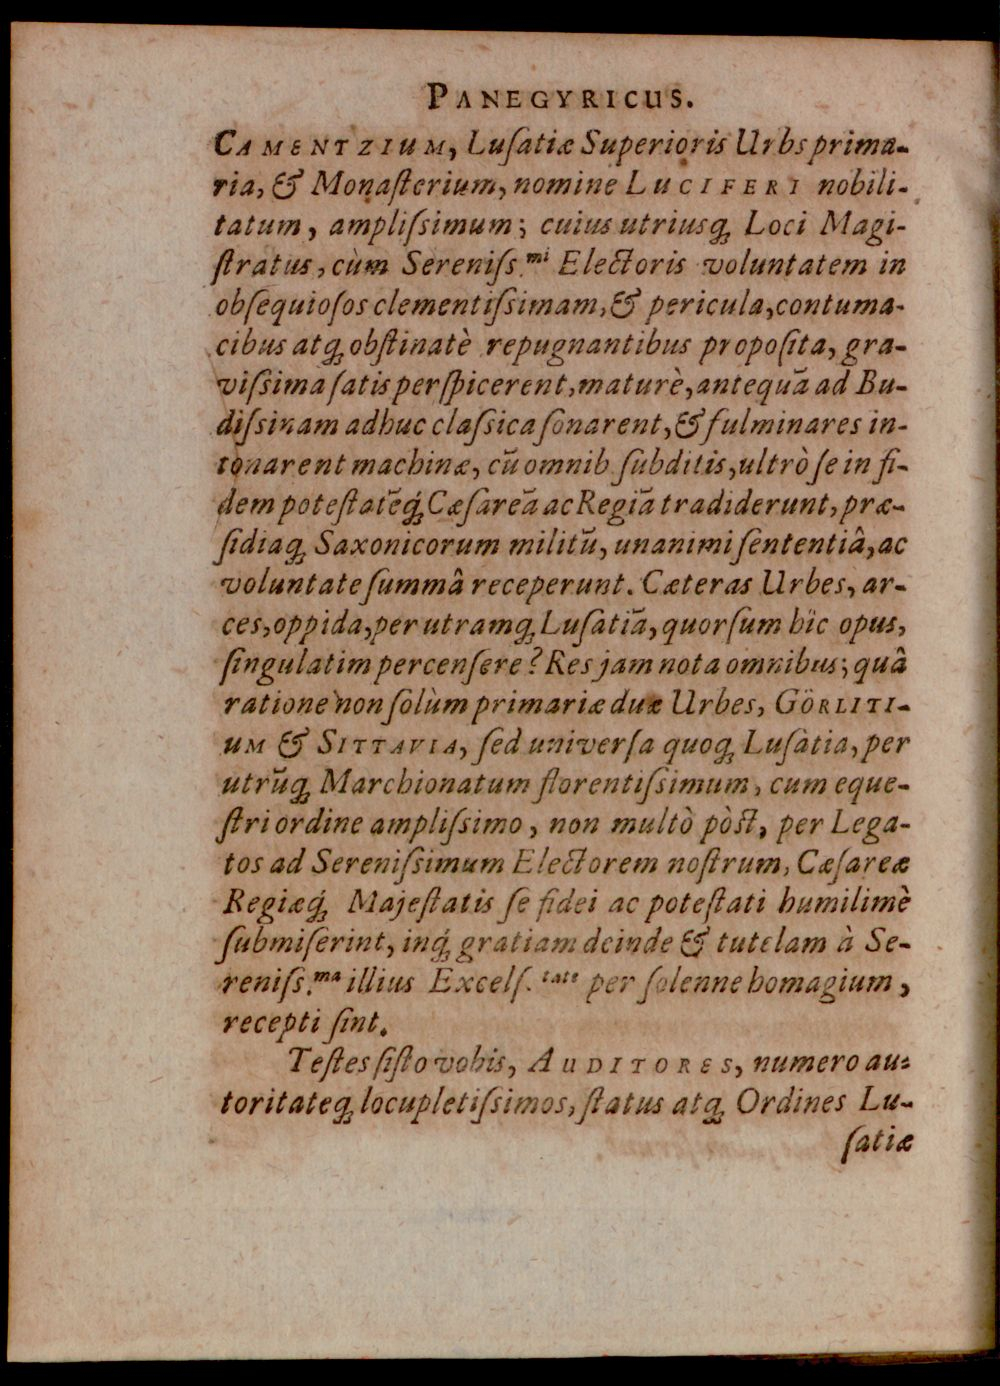 PANEGYRICUS.
CAMENTZIUM, Luſatiæ Superioris Urbs prima-
ria, & Monaſterium, nomine LUCIFERI nobili-
tatum, ampliſsimum; cuius utriusq́; Loci Magi-
ſtratus, cùm Sereniſs.mi Electoris voluntatem in
obſequioſos clementiſsimam, & pericula, contuma-
cibus atq; obſtinatè repugnantibus propoſita, gra-
viſsima ſatis perſpicerent, maturè, antequã ad Bu-
diſsinam adhuc claſsica ſonarent, & fulminares in-
tonarent machinæ, cũ omnib. ſubditis, ultrò ſe in fi-
dem poteſtatẽq́; Cæſareã ac Regiã tradiderunt, præ-
ſidiaq; Saxonicorum militũ, unanimi ſententiâ, ac
voluntate ſummâ receperunt. Cæteras Urbes, ar-
ces, oppida, per utramq; Luſatiã, quorſum hîc opus,
ſingulatim percenſere? Res jam nota omnibus; quâ
ratione non ſolùm primariæ duæ Urbes, GÖRLITI-
UM & SITTAVIA, ſed univerſa quoq; Luſatia, per
utrũq; Marchionatum florentiſsimum, cum eque-
ſtri ordine ampliſsimo, non multò pòſt, per Lega-
tos ad Sereniſsimum Electorem noſtrum, Cæſareæ
Regiæq́; Majeſtatis ſe fidei ac poteſtati humilimè
ſubmiſerint, inq́; gratiam deinde & tutelam à Se-
reniſs.ma illius Excelſ.tate per ſolenne homagium,
recepti ſint.
Teſtes ſiſto vobis, AUDITORES, numero au-
toritateq; locupletiſsimos, ſtatus atq; Ordines Lu-
ſatiæ